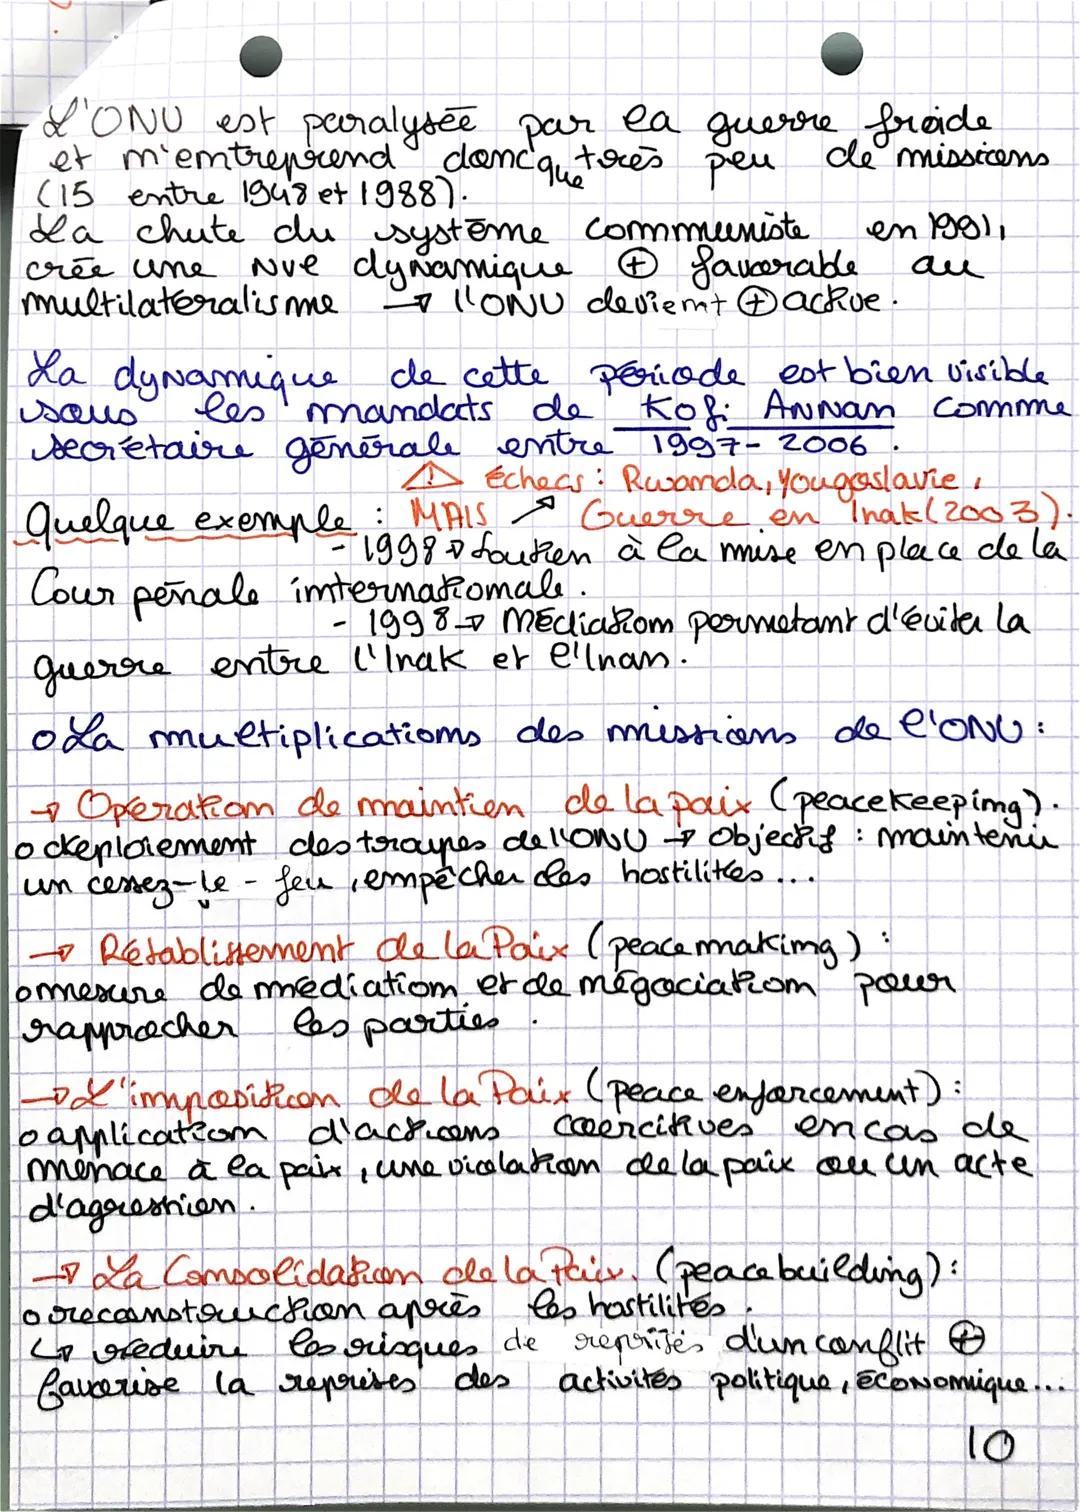 L'ONU est paralysée par la guerre froide
et n'entreprend donc que très peu de missions
(15 entre 1948 et 1988).
La chute du système communiste en 1991,
crée une nve dynamique ⊕ favorable au
multilatéralisme → l'ONU devient ⊕ active.
La dynamique de cette période est bien visible
sous les mandats de Kofi ANNAN comme
secrétaire générale entre 1997-2006.
⚠ échecs : Rwanda, Yougoslavie,
Quelque exemple : MAIS ↗ Guerre en Irak (2003).
- 1998 → soutien à la mise en place de la
Cour pénale internationale.
- 1998 → Médiation permetant d'éviter la
guerre entre l'Irak et l'Iran.
o La multiplications des missions de l'ONU :
→ Opération de maintien de la paix (peacekeeping).
o dkeploiement des troupes de l'ONU → Objectif : maintenir
un cessez-le-feu, empêcher des hostilités...
→ Rétablissement de la Paix (peace making) :
o mesure de médiation et de négociation pour
rapprocher les parties.
→ L'imposition de la Paix (peace enforcement) :
o application d'actions coercitives en cas de
menace à la paix, une violation de la paix ou un acte
d'agression.
→ La Consolidation de la Paix. (peace building) :
o reconstruction après les hostilités.
↳ réduire les risques de reprises d'un conflit ⊕
favorise la reprises des activités politique, économique...
10